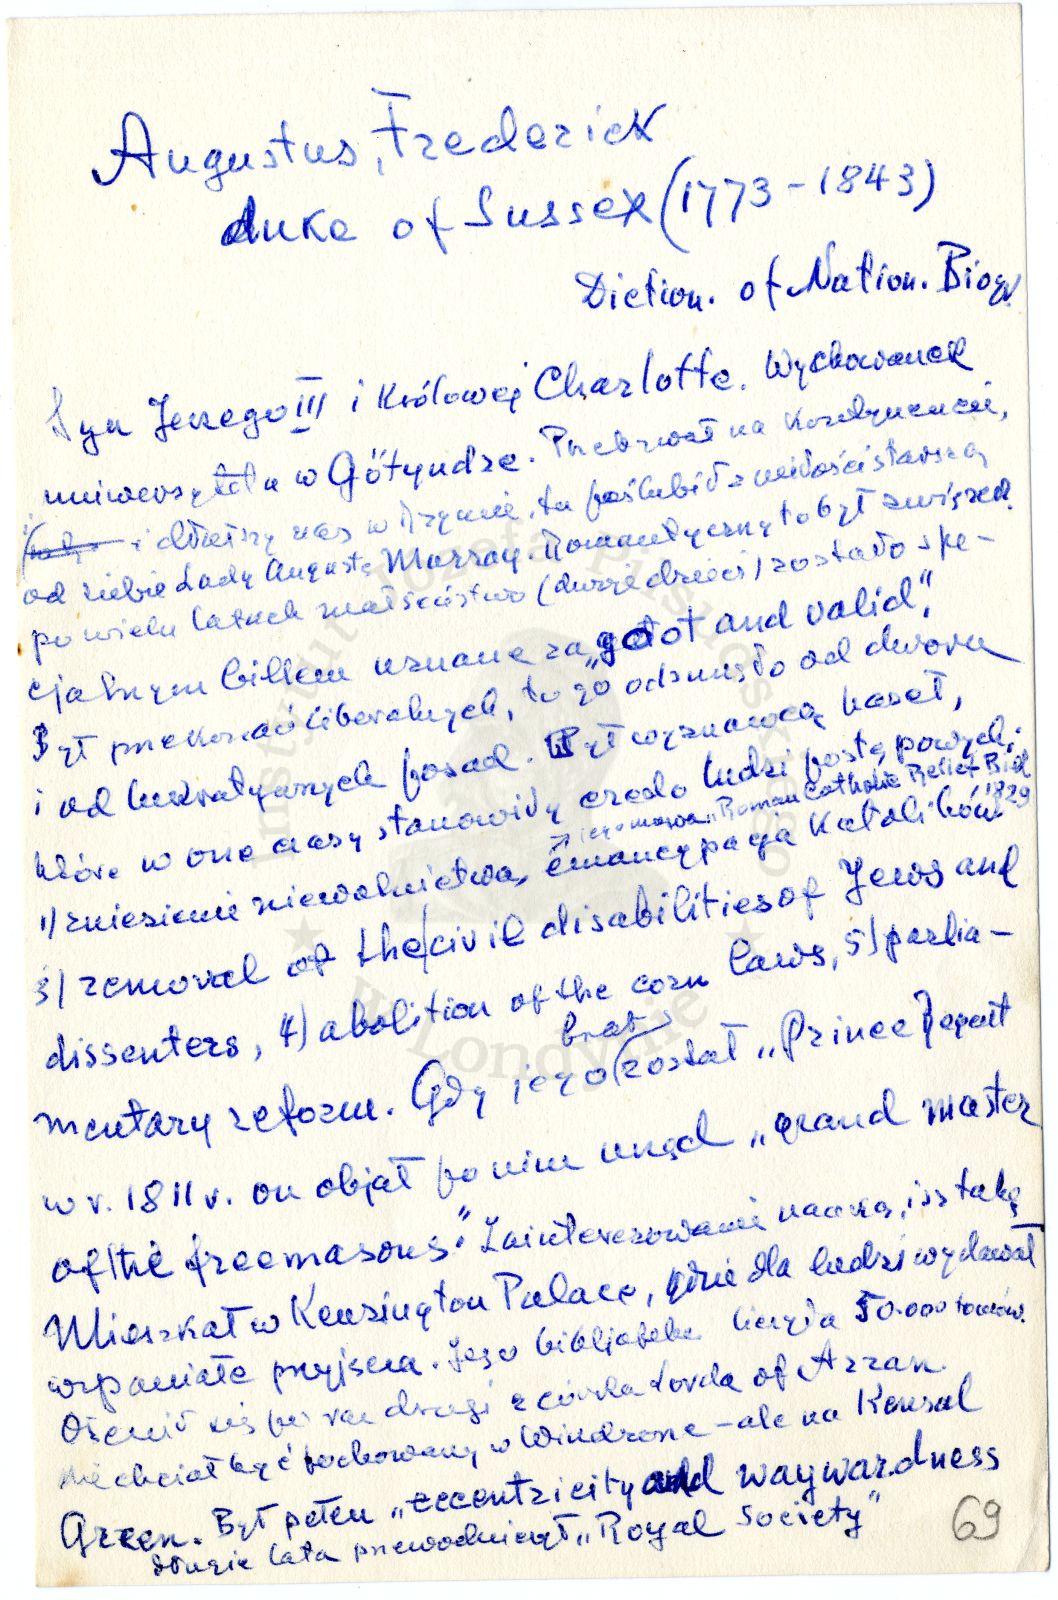 Augustus, Frederick
duke of Sussex (1773-1843)
Diction. of Nation. Biogr.
Syn Jerzego III i Królowej Charlotte. Wychowanek
uniwersytetu w Götyndze. Przebywał na Kontynencie,
i dłuższy czas w Rzymie, tu poślubił z miłości starszą
od siebie Lady Augustę Murray. Romantyczny to był związek.
po wielu latach małżeństwo (dwoje dzieci) zostało spe-
cjalnym billem uznane za „not and valid”.
Był przekonań liberalnych, to go odsunęło od dworu
i od lukratywnych posad. Był wyznawcą haseł,
które w one czasy stanowiły credo ludzi postępowych:
jego mowa „Roman Catholic Relief Bill 1829
1) zniesienie niewolnictwa, emancypacja Katolików
3) removal of the civil disabilities of Jews and
dissenters, 4) abolition of the corn laws, 5) parlia-
mentary reform. Gdy jego brat został „Prince Regent
w r. 1811 r. on objął po nim urząd „grand master
of the freemasons”. Zainteresowanie nauką, i sztuką
Mieszkał w Kensington Palace, gdzie dla ludzi wydawał
wspaniałe przyjęcia. Jego biblioteka liczyła 50.000 tomów.
Ożenił się po raz drugi z córką Lorda of Arran.
nie chciał być pochowany w Windzorze - ale na Kensal
Green. Był pełen „eccentricity and waywardness
długie lata przewodniczył „Royal Society”
69
Instytut Józefa Piłsudskiego
w Londynie